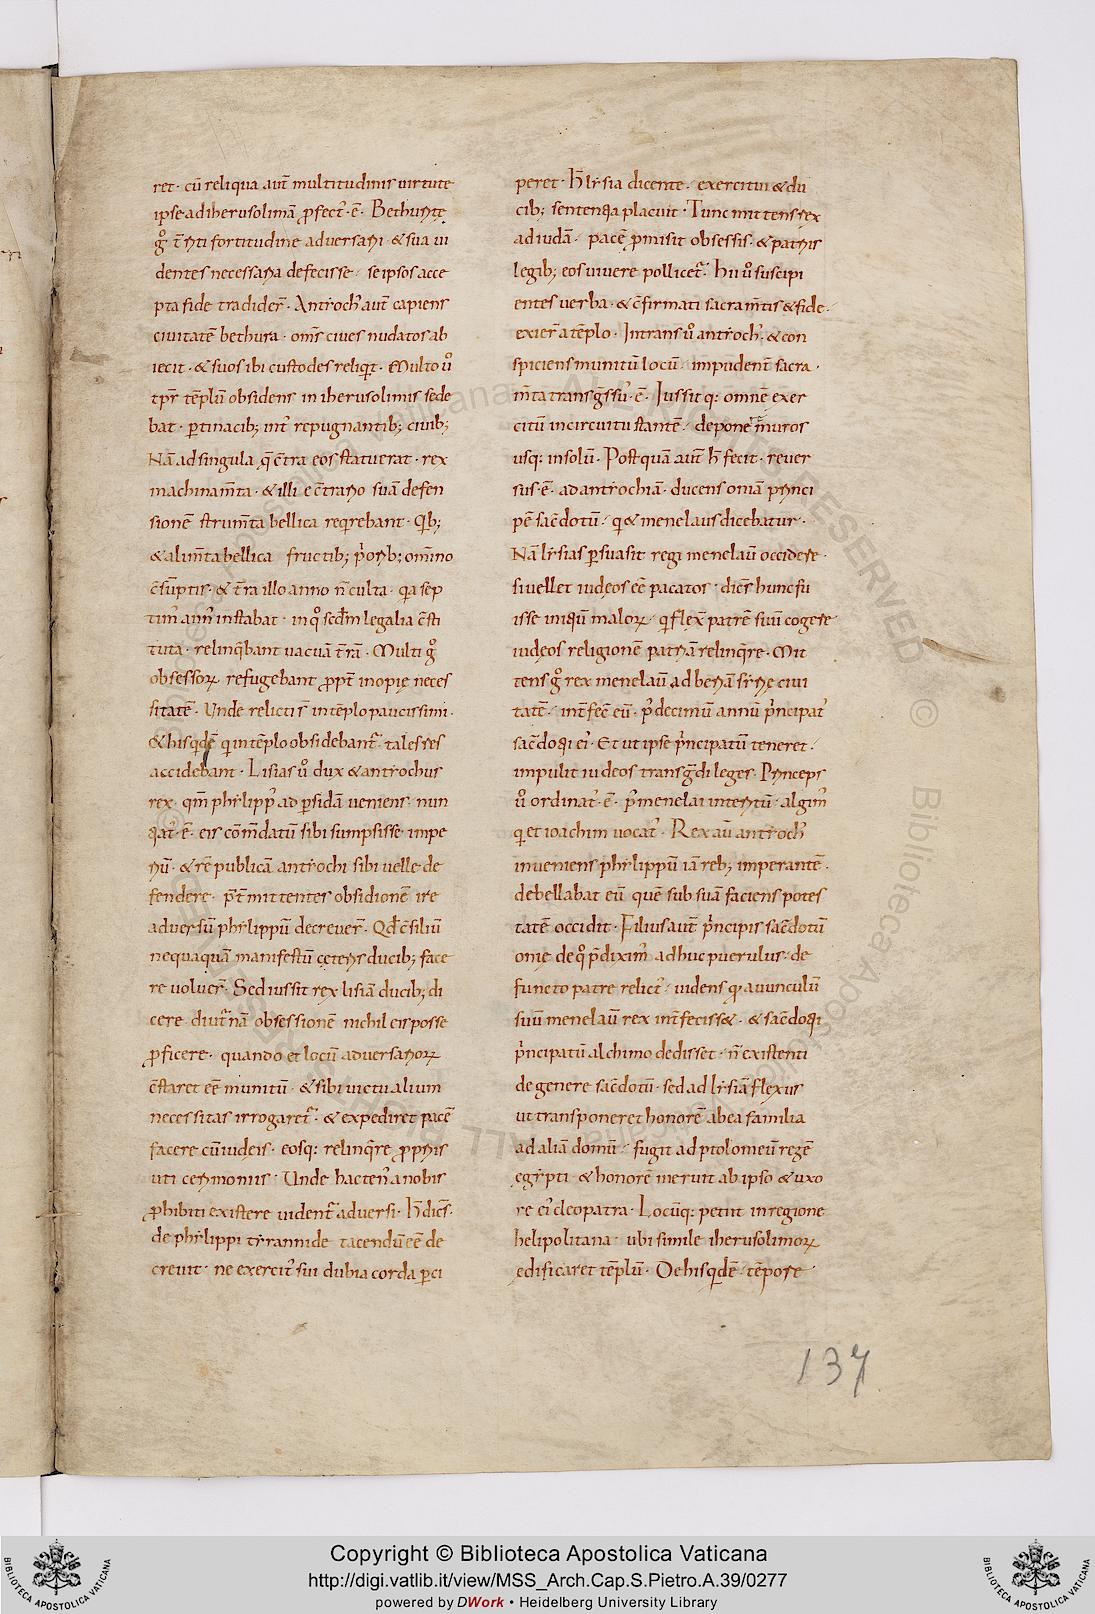 ret· cū reliqua aut̄ multitudinis uirtute
ipse ad iherusolimā ꝓfect᷒·ē· Bethurite
g̊ t̄riti fortitudine aduersarii · & sua ui
dentes necessaria defecisse · se ipsos acce
pta fide tradider̄· Antioch᷒ aut̄ capiens
ciuitatē bethura · om̄s ciues nudatos ab
iecit · & suos ibi custodes reliqͥt· Multo ů
tp̄r tēplū obsidens in iherusolimis sede
bat · ꝑtinacib; int̄ repugnantib; ciuib;
Nā ad singula q̄ c̄tra eos statuerat · rex
machinam̄ta · & illi e c̄trario suā defen
sionē strum̄ta bellica reqͥrebant · Qͥb;
& alim̄ta bellica fructib; pͥorib; om̄ino
c̄sūptis · & t̄ra illo anno n̄ culta · qͣ sep
tim᷒ ann᷒ instabat · in qͦ scdm̄ legalia c̄sti
tuta · relinqͥbant uacuā t̄rā · Multi g̊
obsessoꝝ refugebant ꝓpt̄ inopię neces
sitatē · Unde relicti s̄ in tēplo paucissimi ·
& his qͥdē qͥ in tēplo obsidebant᷒ · tales res
accidebant · Lisias ů dux & antiochus
rex · qm̄ philipp᷒ ad ꝑsidā ueniens · nun
tiat᷒·ē· eis cōm̄datū sibi sumpsisse impe
riū · & rē publicā antiochi sibi uelle de
fendere · p̄t̄mittentes obsidionē ire
aduersū philippū decreuer̄ · Qd̄ c̄siliū
nequaquā manifestū cęteris ducib; face
re uoluer̄ · Sed iussit rex lisiā ducib; di
cere · diut̄nā obsessionē nichil eis posse
ꝓficere · quando et locū aduersarioꝝ
c̄staret eē munitū · & sibi uictualium
necessitas irrogaret᷒ · & expediret pacē
facere cū iudeis · eosq: relinqͥre ꝓpriis
uti cerimoniis · Unde hacten᷒ a nobis
ꝓhibiti existere uident᷒ aduersi · H̄ dic̄s ·
de philippi tirannide tacendū eē de
creuit · ne exercit᷒ sui dubia corda ꝑci
peret · H̄ lisia dicente · exercitui & du
cib; sententia placuit · Tunc mittens rex
ad iudā · pacē ꝓmisit obsessis · & patriis
legib; eos uiuere pollicet᷒ · Hii ů suscipi
entes uerba · & c̄firmati sacram̄tis & fide ·
exier̄ a tēplo · Intrans ů antioch᷒ · & con
spiciens munitū locū · impudent̄ sacra ·
m̄ta transḡssu᷒·ē· Iussitq: omnē exer
citū incircuitu stantē · deponere muros
usq: in solum · Postquā aut̄ h̄ fecit · reuer
sus·ē· ad antiochiā · ducens oniā princi
pē sac̄dotū · qͥ & menelaus dicebatur ·
Nā lisias ꝑsuasit regi menelaū occidere ·
si uellet iudeos eē pacatos · dic̄s hunc fu
isse iniqͥū maloꝝ · qͥ flex̄ patrē suū cogere
iudęos religionē patriā relinqͥre · Mit
tens g̊ rex menelaū ad beriā sirię ciui
tatē · int̄fec̄ eū · p᷒ decimū annū pͥncipat᷒
sac̄dotii ei᷒ · Et ut ipse pͥncipatū teneret ·
impulit iudeos transgͣdi leges · Princeps
ů ordinat᷒·ē· p᷒ menelai interitū · algim᷒
qͥ et ioachim uocat᷒ · Rex aū antioch᷒
inueniens philippū iā reb; imperantē ·
debellabat eū · quē sub suā faciens potes
tatē occidit · Filius aut̄ pͥncipis sac̄dotū
onię de qͦ p̄dixim᷒ adhuc puerulus · de
functo patre relict᷒ · uidens qͥa auunculū
suū menelaū rex int̄fecisset · & sac̄dotii
pͥncipatū alchimo dedisset · n̄ existenti
de genere sac̄dotū · sed ad lisiā flexus
ut transponeret honorē ab ea familia
ad aliā domū · fugit ad ptolomeū regē
egipti · & honorē meruit ab ipso & uxo
re ei᷒ cleopatra · Locūq: petiit in regione
helipolitana · ubi simile iherusolimoꝝ
edificaret tēplū · De his qͥdē · tēpore ·
137
Copyright © Biblioteca Apostolica Vaticana
http://digi.vatlib.it/view/MSS_Arch.Cap.S.Pietro.A.39/0277
powered by DWork • Heidelberg University Library